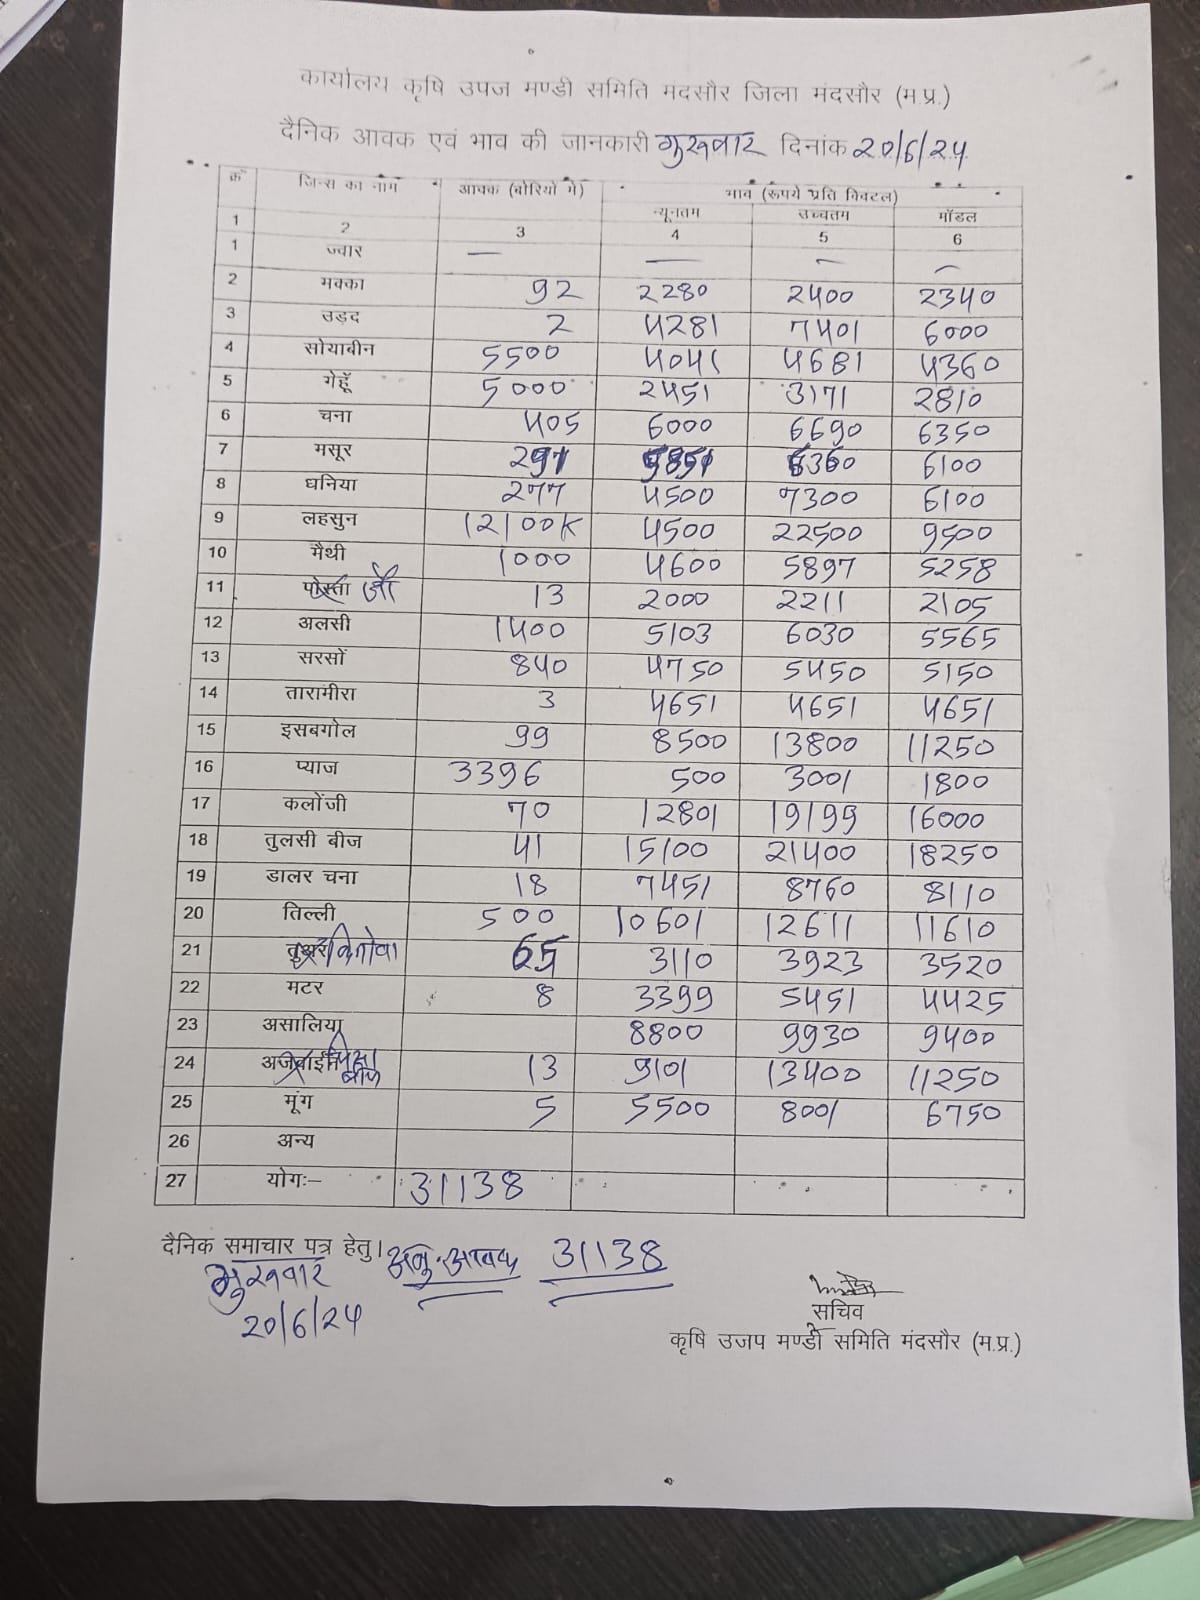 कार्यालय कृषि उपज मण्डी समिति मदसौर जिला मंदसौर (म.प्र.)
दैनिक आवक एवं भाव की जानकारी गुरुवार दिनांक 20/6/24
क्रं जिन्स का नाम आवक (बोरियो मे) भाव (रूपये प्रति क्विटल)
न्यूनतम उच्चतम मॉडल
1 2 3 4 5 6
1 ज्वार — — — —
2 मक्का 92 2280 2400 2340
3 उड़द 2 4281 7401 6000
4 सोयाबीन 5500 4041 4681 4360
5 गेहूॅ 5000 2451 3171 2810
6 चना 405 6000 6690 6350
7 मसूर 297 5851 6360 6100
8 धनिया 277 4500 7300 6100
9 लहसुन 12100K 4500 22500 9500
10 मैथी 1000 4600 5897 5258
11 पोस्ता जौ 13 2000 2211 2105
12 अलसी 1400 5103 6030 5565
13 सरसों 840 4750 5450 5150
14 तारामीरा 3 4651 4651 4651
15 इसबगोल 99 8500 13800 11250
16 प्याज 3396 500 3001 1800
17 कलोंजी 70 12801 19199 16000
18 तुलसी बीज 41 15100 21400 18250
19 डालर चना 18 7451 8760 8110
20 तिल्ली 500 10601 12611 11610
21 तुअर 65 3110 3923 3520
22 मटर 8 3399 5451 4425
23 असालिया 8800 9930 9400
24 अजवाईन बीज 13 9101 13400 11250
25 मूंग 5 5500 8001 6750
26 अन्य
27 योगः– 31138
दैनिक समाचार पत्र हेतु। अनु. आवक 31138
गुरुवार
20/6/24
सचिव
कृषि उजप मण्डी समिति मंदसौर (म.प्र.)